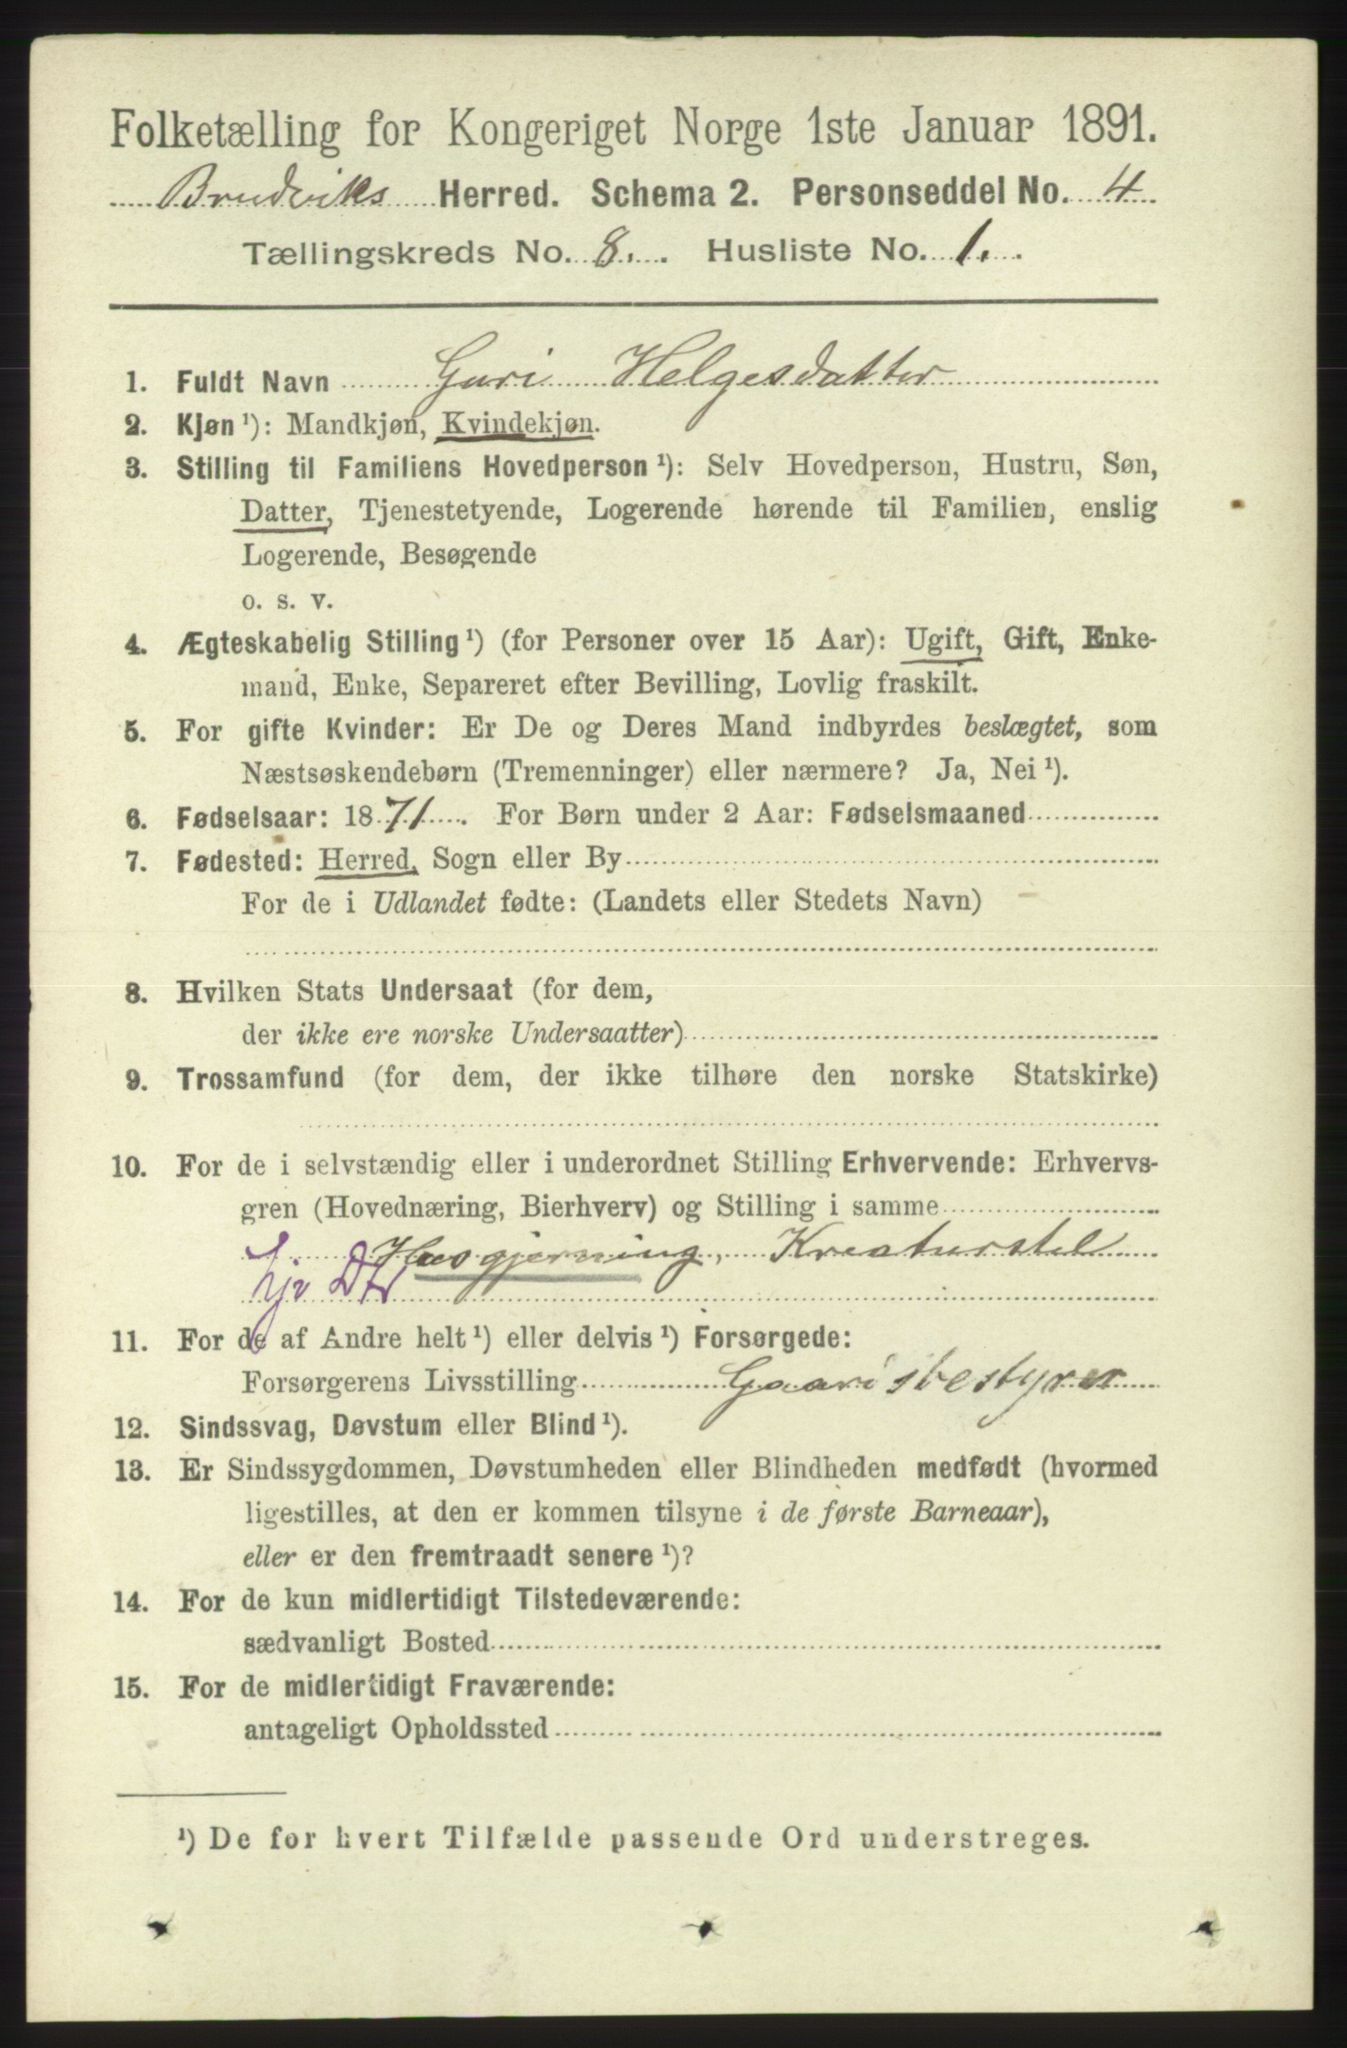 Folketælling for Kongeriget Norge 1ste Januar 1891.
Brudviks Herred. Schema 2. Personseddel No. 4
Tællingskreds No. 8. Husliste No. 1.
1. Fuldt Navn Guri Helgesdatter
2. Kjøn ¹): Mandkjøn, Kvindekjøn.
3. Stilling til Familiens Hovedperson ¹): Selv Hovedperson, Hustru, Søn,
Datter, Tjenestetyende, Logerende hørende til Familien, enslig
Logerende, Besøgende
o. s. v.
4. Ægteskabelig Stilling ¹) (for Personer over 15 Aar): Ugift, Gift, Enke-
mand, Enke, Separeret efter Bevilling, Lovlig fraskilt.
5. For gifte Kvinder: Er De og Deres Mand indbyrdes beslægtet, som
Næstsøskendebørn (Tremenninger) eller nærmere? Ja, Nei ¹).
6. Fødselsaar: 1871. For Børn under 2 Aar: Fødselsmaaned
7. Fødested: Herred, Sogn eller By
For de i Udlandet fødte: (Landets eller Stedets Navn)
8. Hvilken Stats Undersaat (for dem,
der ikke ere norske Undersaatter)
9. Trossamfund (for dem, der ikke tilhøre den norske Statskirke)
10. For de i selvstændig eller i underordnet Stilling Erhvervende: Erhvervs-
gren (Hovednæring, Bierhverv) og Stilling i samme
Husgjerning, Kreaturstel
hjv Dtr
11. For de af Andre helt ¹) eller delvis ¹) Forsørgede:
Forsørgerens Livsstilling Gaardsbestyrer
12. Sindssvag, Døvstum eller Blind ¹).
13. Er Sindssygdommen, Døvstumheden eller Blindheden medfødt (hvormed
ligestilles, at den er kommen tilsyne i de første Barneaar),
eller er den fremtraadt senere ¹)?
14. For de kun midlertidigt Tilstedeværende:
sædvanligt Bosted
15. For de midlertidigt Fraværende:
antageligt Opholdssted
¹) De for hvert Tilfælde passende Ord understreges.